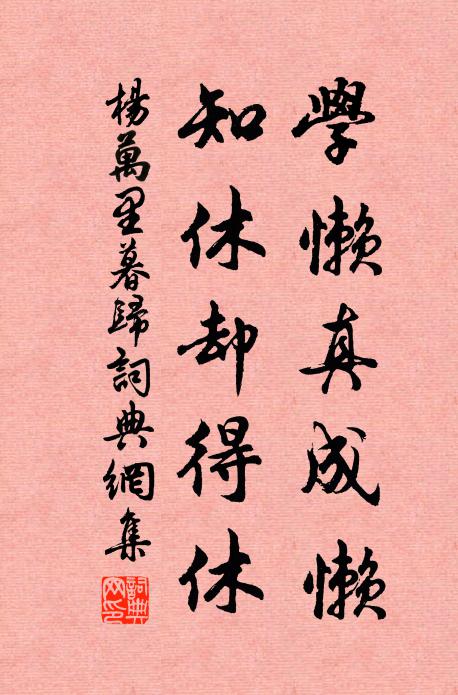 學懶真成懶
知休却得休
楊萬里暮歸詞典網集
詞典
网印